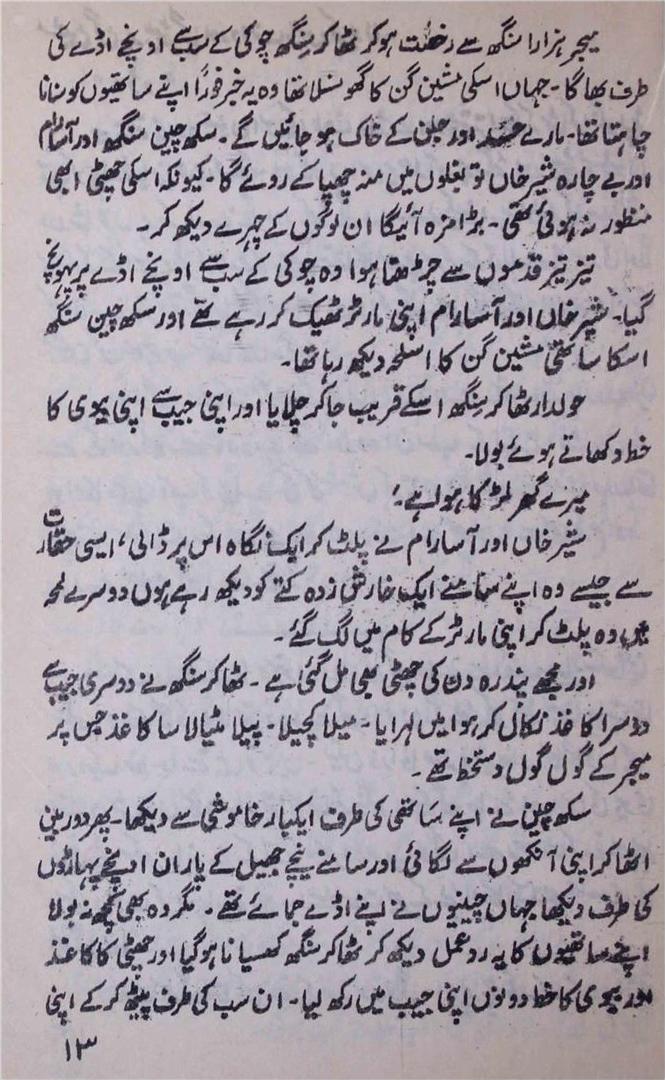 میجر ہزارا سنگھ سے رخصت ہوکر ٹھاکر سنگھ چوکی کے سب سے اونچے اڈے کی
طرف بھاگا۔ جہاں اسکی مشین گن کا گھونسلا تھا وہ یہ خبر فوراً اپنے ساتھیوں کو سنانا
چاہتا تھا۔ مارے حسد اور جلن کے خاک ہو جائیں گے۔ سکھ چین سنگھ اور آسارام
اور بے چارہ شیر خاں تو بغلوں میں منہ چھپا کے روئے گا۔ کیونکہ اسکی چھٹی ابھی
منظور نہ ہوئی تھی۔ بڑا مزہ آئیگا ان لوگوں کے چہرے دیکھ کر۔
تیز تیز قدموں سے چڑھتا ہوا وہ چوکی کے سب سے اونچے اڈے پر پہونچ
گیا۔ شیر خاں اور آسارام اپنی مارٹر ٹھیک کر رہے تھے اور سکھ چین سنگھ
اسکا ساتھی مشین گن کا اسلحہ دیکھ رہا تھا۔
حولدار ٹھاکر سنگھ اسکے قریب جاکر چلایا اور اپنی جیب سے اپنی بیوی کا
خط دکھاتے ہوئے بولا۔
میرے گھر لڑکا ہوا ہے!
شیر خاں اور آسارام نے پلٹ کر ایک نگاہ اس پر ڈالی، ایسی حقارت
سے جیسے وہ اپنے سامنے ایک خارش زدہ کتے کو دیکھ رہے ہوں دوسرے لمحہ
میں وہ پلٹ کر اپنی مارٹر کے کام میں لگ گئے۔
اور مجھے پندرہ دن کی چھٹی بھی مل گئی ہے۔ ٹھاکر سنگھ نے دوسری جیب سے
دوسرا کاغذ نکال کر ہوا میں لہرایا۔ میلا کچیلا۔ پیلا مٹیالا سا کاغذ جس پر
میجر کے گول گول دستخط تھے۔
سکھ چین نے اپنے ساتھی کی طرف ایکبار خاموشی سے دیکھا۔ پھر دوربین
اٹھا کر اپنی آنکھوں سے لگائی اور سامنے نیچے جھیل کے پار ان اونچے پہاڑوں
کی طرف دیکھا جہاں چینیوں نے اپنے اڈے جمائے تھے۔ مگر وہ بھی کچھ نہ بولا
اپنے ساتھیوں کا یہ ردعمل دیکھ کر ٹھاکر سنگھ کھسیانا ہوگیا اور چھٹی کا کاغذ
اور بیوی کا خط دونوں اپنی جیب میں رکھ لیا۔ ان سب کی طرف پیٹھ کرکے اپنی
۱۳